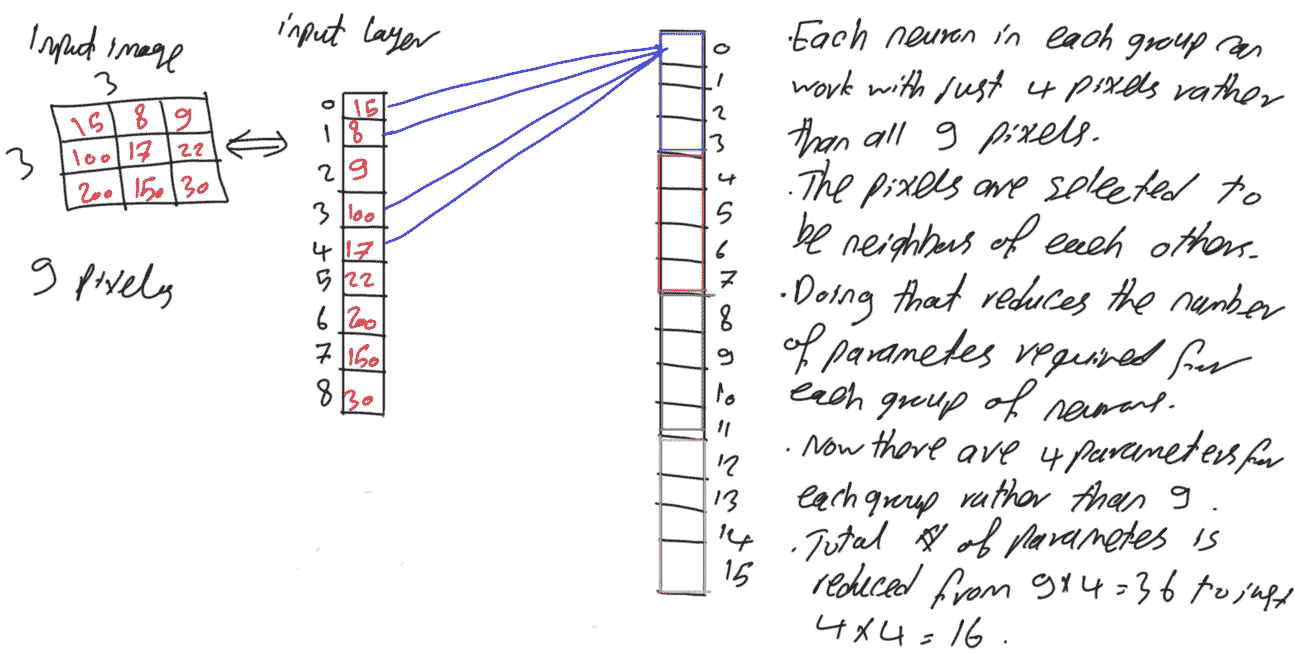 Input image
3
3
15 8 9
100 17 22
200 150 30
9 pixels
input Layer
0 15
1 8
2 9
3 100
4 17
5 22
6 200
7 150
8 30
0
1
2
3
4
5
6
7
8
9
10
11
12
13
14
15
. Each neuron in each group can
work with just 4 pixels rather
than all 9 pixels.
. The pixels are selected to
be neighbors of each others.
. Doing that reduces the number
of parametes required for
each group of neurons.
. Now there are 4 parameters for
each group rather than 9.
. Total # of parametes is
reduced from 9x4=36 to just
4x4=16.